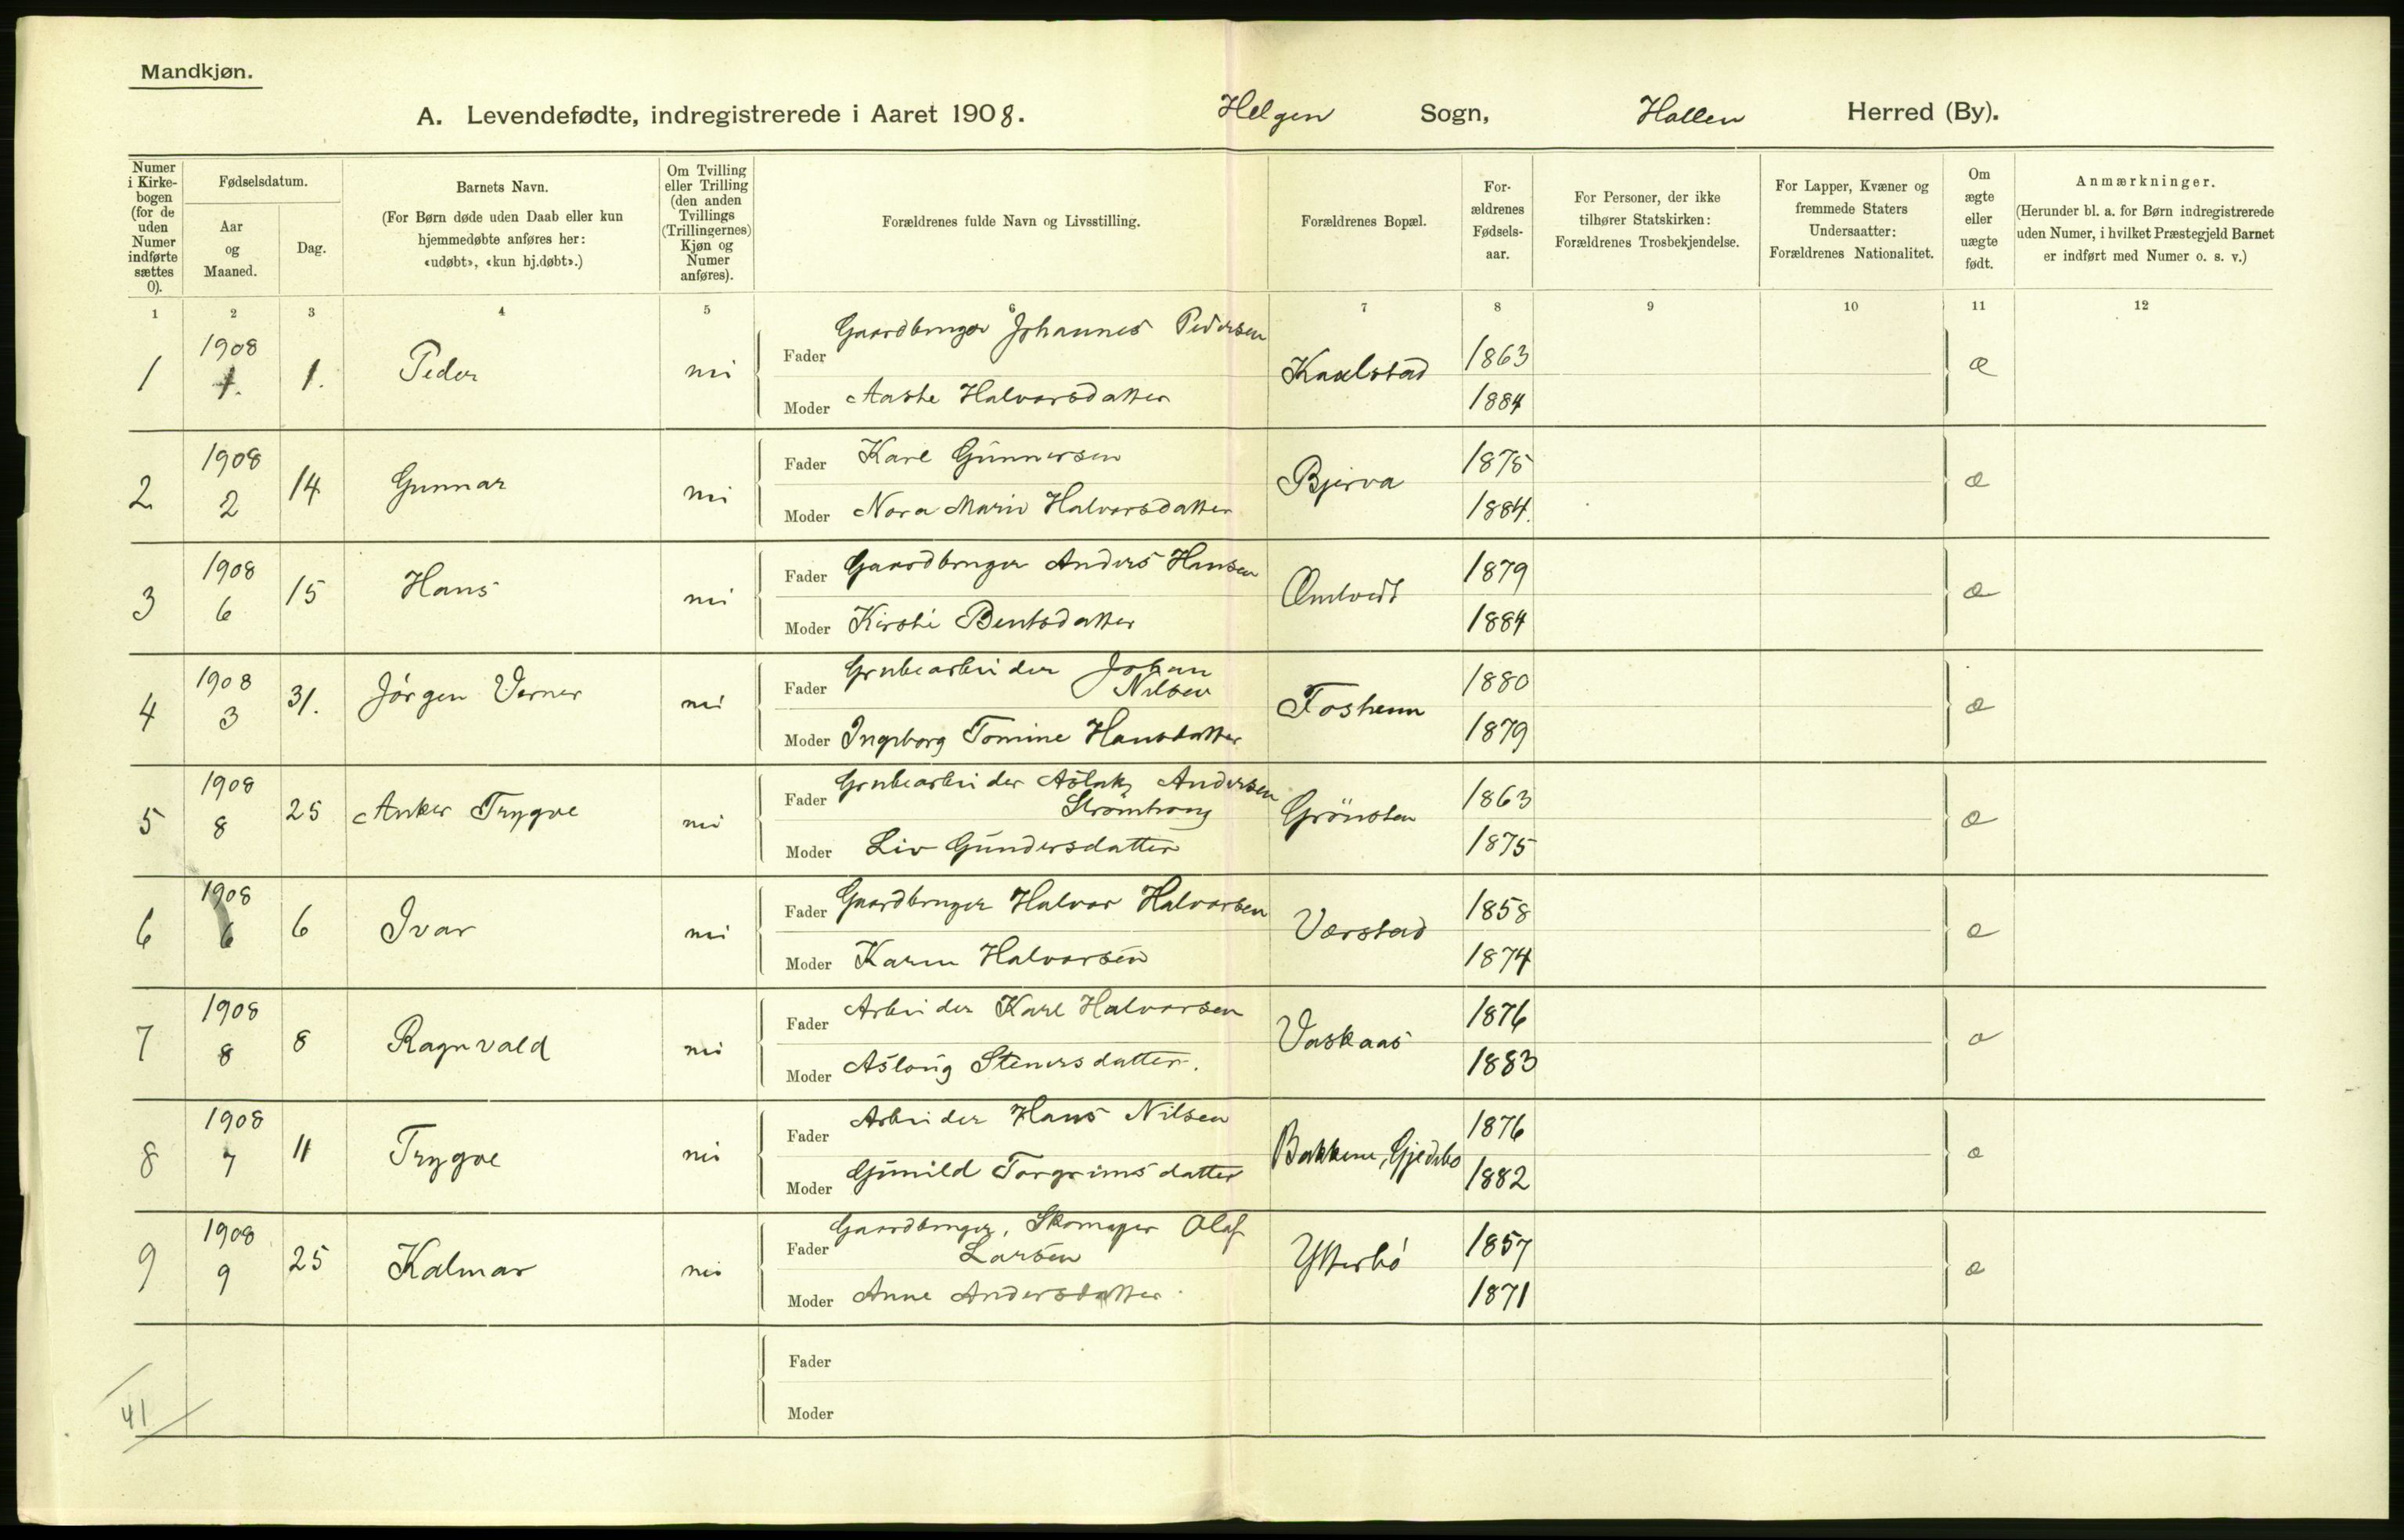 Mandkjøn.
A. Levendefødte, indregistrerede i Aaret 1908. Helgen Sogn, Hollen Herred (By).
Numer i Kirkebogen (for de uden Numer indførte sættes 0).
Fødselsdatum.
Aar og Maaned.
Dag.
Barnets Navn.
(For Børn døde uden Daab eller kun hjemmedøbte anføres her: «udøbt», «kun hj.døbt».)
Om Tvilling eller Trilling (den anden Tvillings (Trillingernes) Kjøn og Numer anføres).
Forældrenes fulde Navn og Livsstilling.
Forældrenes Bopæl.
Forældrenes Fødselsaar.
For Personer, der ikke tilhører Statskirken: Forældrenes Trosbekjendelse.
For Lapper, Kvæner og fremmede Staters Undersaatter: Forældrenes Nationalitet.
Om ægte eller uægte født.
Anmærkninger.
(Herunder bl. a. for Børn indregistrerede uden Numer, i hvilket Præstegjeld Barnet er indført med Numer o. s. v.)
1 2 3 4 5 6 7 8 9 10 11 12
1 1908 1. 1. Peder nei
Fader Gaardbruger Johannes Pedersen 1863 æ
Moder Aaste Halvorsdatter 1884
2 1908 2 14 Gunnar nei
Fader Karl Gunnersen Bjerva 1875 æ
Moder Nora Marie Halvorsdatter 1884.
3 1908 6 15 Hans nei
Fader Gaardbruger Anders Hansen Omtvedt 1879 æ
Moder Kirsti Bentsdatter 1884
4 1908 3 31. Jörgen Verner nei
Fader Grubearbeider Johan Nilsen Fosheim 1880 æ
Moder Ingeborg Tomine Hansdatter 1879
5 1908 8 25 Anker Trygve nei
Fader Grubearbeider Aslak Andersen Grönsten 1863 æ
Moder Liv Gundersdatter 1875
6 1908 6 6 Ivar nei
Fader Gaardbruger Halvor Halvorsen Værstad 1858 æ
Moder Karen Halvorsen 1874
7 1908 8 8 Ragnvald nei
Fader Arbeider Karl Halvorsen Vaskaas 1876 æ
Moder Aslaug Stenersdatter. 1883
8 1908 7 11 Trygve nei
Fader Arbeider Hans Nilsen Bakkene, Gjedebo 1876 æ
Moder Gunild Torgrimsdatter 1882
9 1908 9 25 Kalmar nei
Fader Gaardbruger, Skomager Olaf Larsen Ytterbö 1857 æ
Moder Anne Andersdatter 1871
Fader
Moder
41